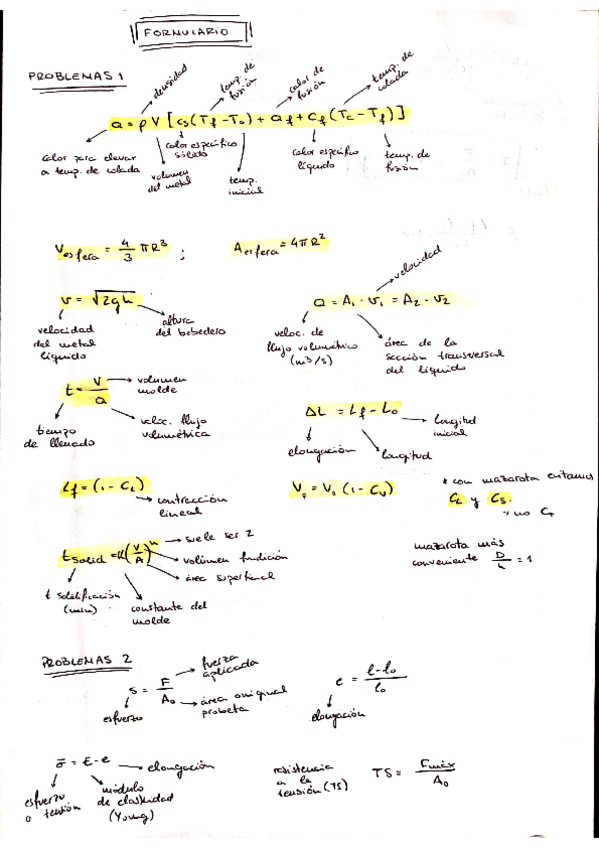 FORMULARIO
PROBLEMAS 1
densidad
temp. de fusión
calor de fusión
temp. de colada
Q = ρ V [cs(Tf-To) + Qf + Cf(Tc-Tf)]
calor para elevar a temp. de colada
calor específico sólido
volumen del metal
temp. inicial
calor específico líquido
temp. de fusión
Vesfera = 4/3 πR³ ; Aesfera = 4πR²
velocidad
v = √2gh
Q = A₁ · v₁ = A₂ · v₂
velocidad del metal líquido
altura del bebedero
veloc. de flujo volumétrico (m³/s)
área de la sección transversal del líquido
t = V/Q
volumen molde
tiempo de llenado
veloc. flujo volumétrica
ΔL = Lf - Lo
longitud inicial
elongación
longitud
Lf = (1 - CL)
contracción lineal
V = Vo (1 - Cv)
* con mazarota evitamos
CL y Cs.
no
tsolid = (V/A)ⁿ
suele ser 2
volumen fundición
área superficial
t solidificación (min)
constante del molde
mazarota más
conveniente D/h = 1
PROBLEMAS 2
s = F/Ao
fuerza aplicada
área original probeta
esfuerzo
e = l-lo/lo
elongación
σ = E·e
elongación
esfuerzo o tensión
módulo de elasticidad (Young)
resistencia a la tensión (TS)
TS = Fmáx/Ao